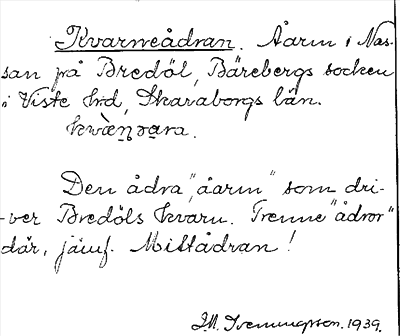 Kvarneådran. Åarm i Nos-
san på Bredöl, Bärebergs socken
i Viste hrd, Skaraborgs län.
kwὰn̥ɜa̱ra.
Den ådra, "åarm" som dri-
ver Bredöls kvarn. Trenne "ådror"
där, jämf. Mittådran!
J.M. Svenungsson. 1939.